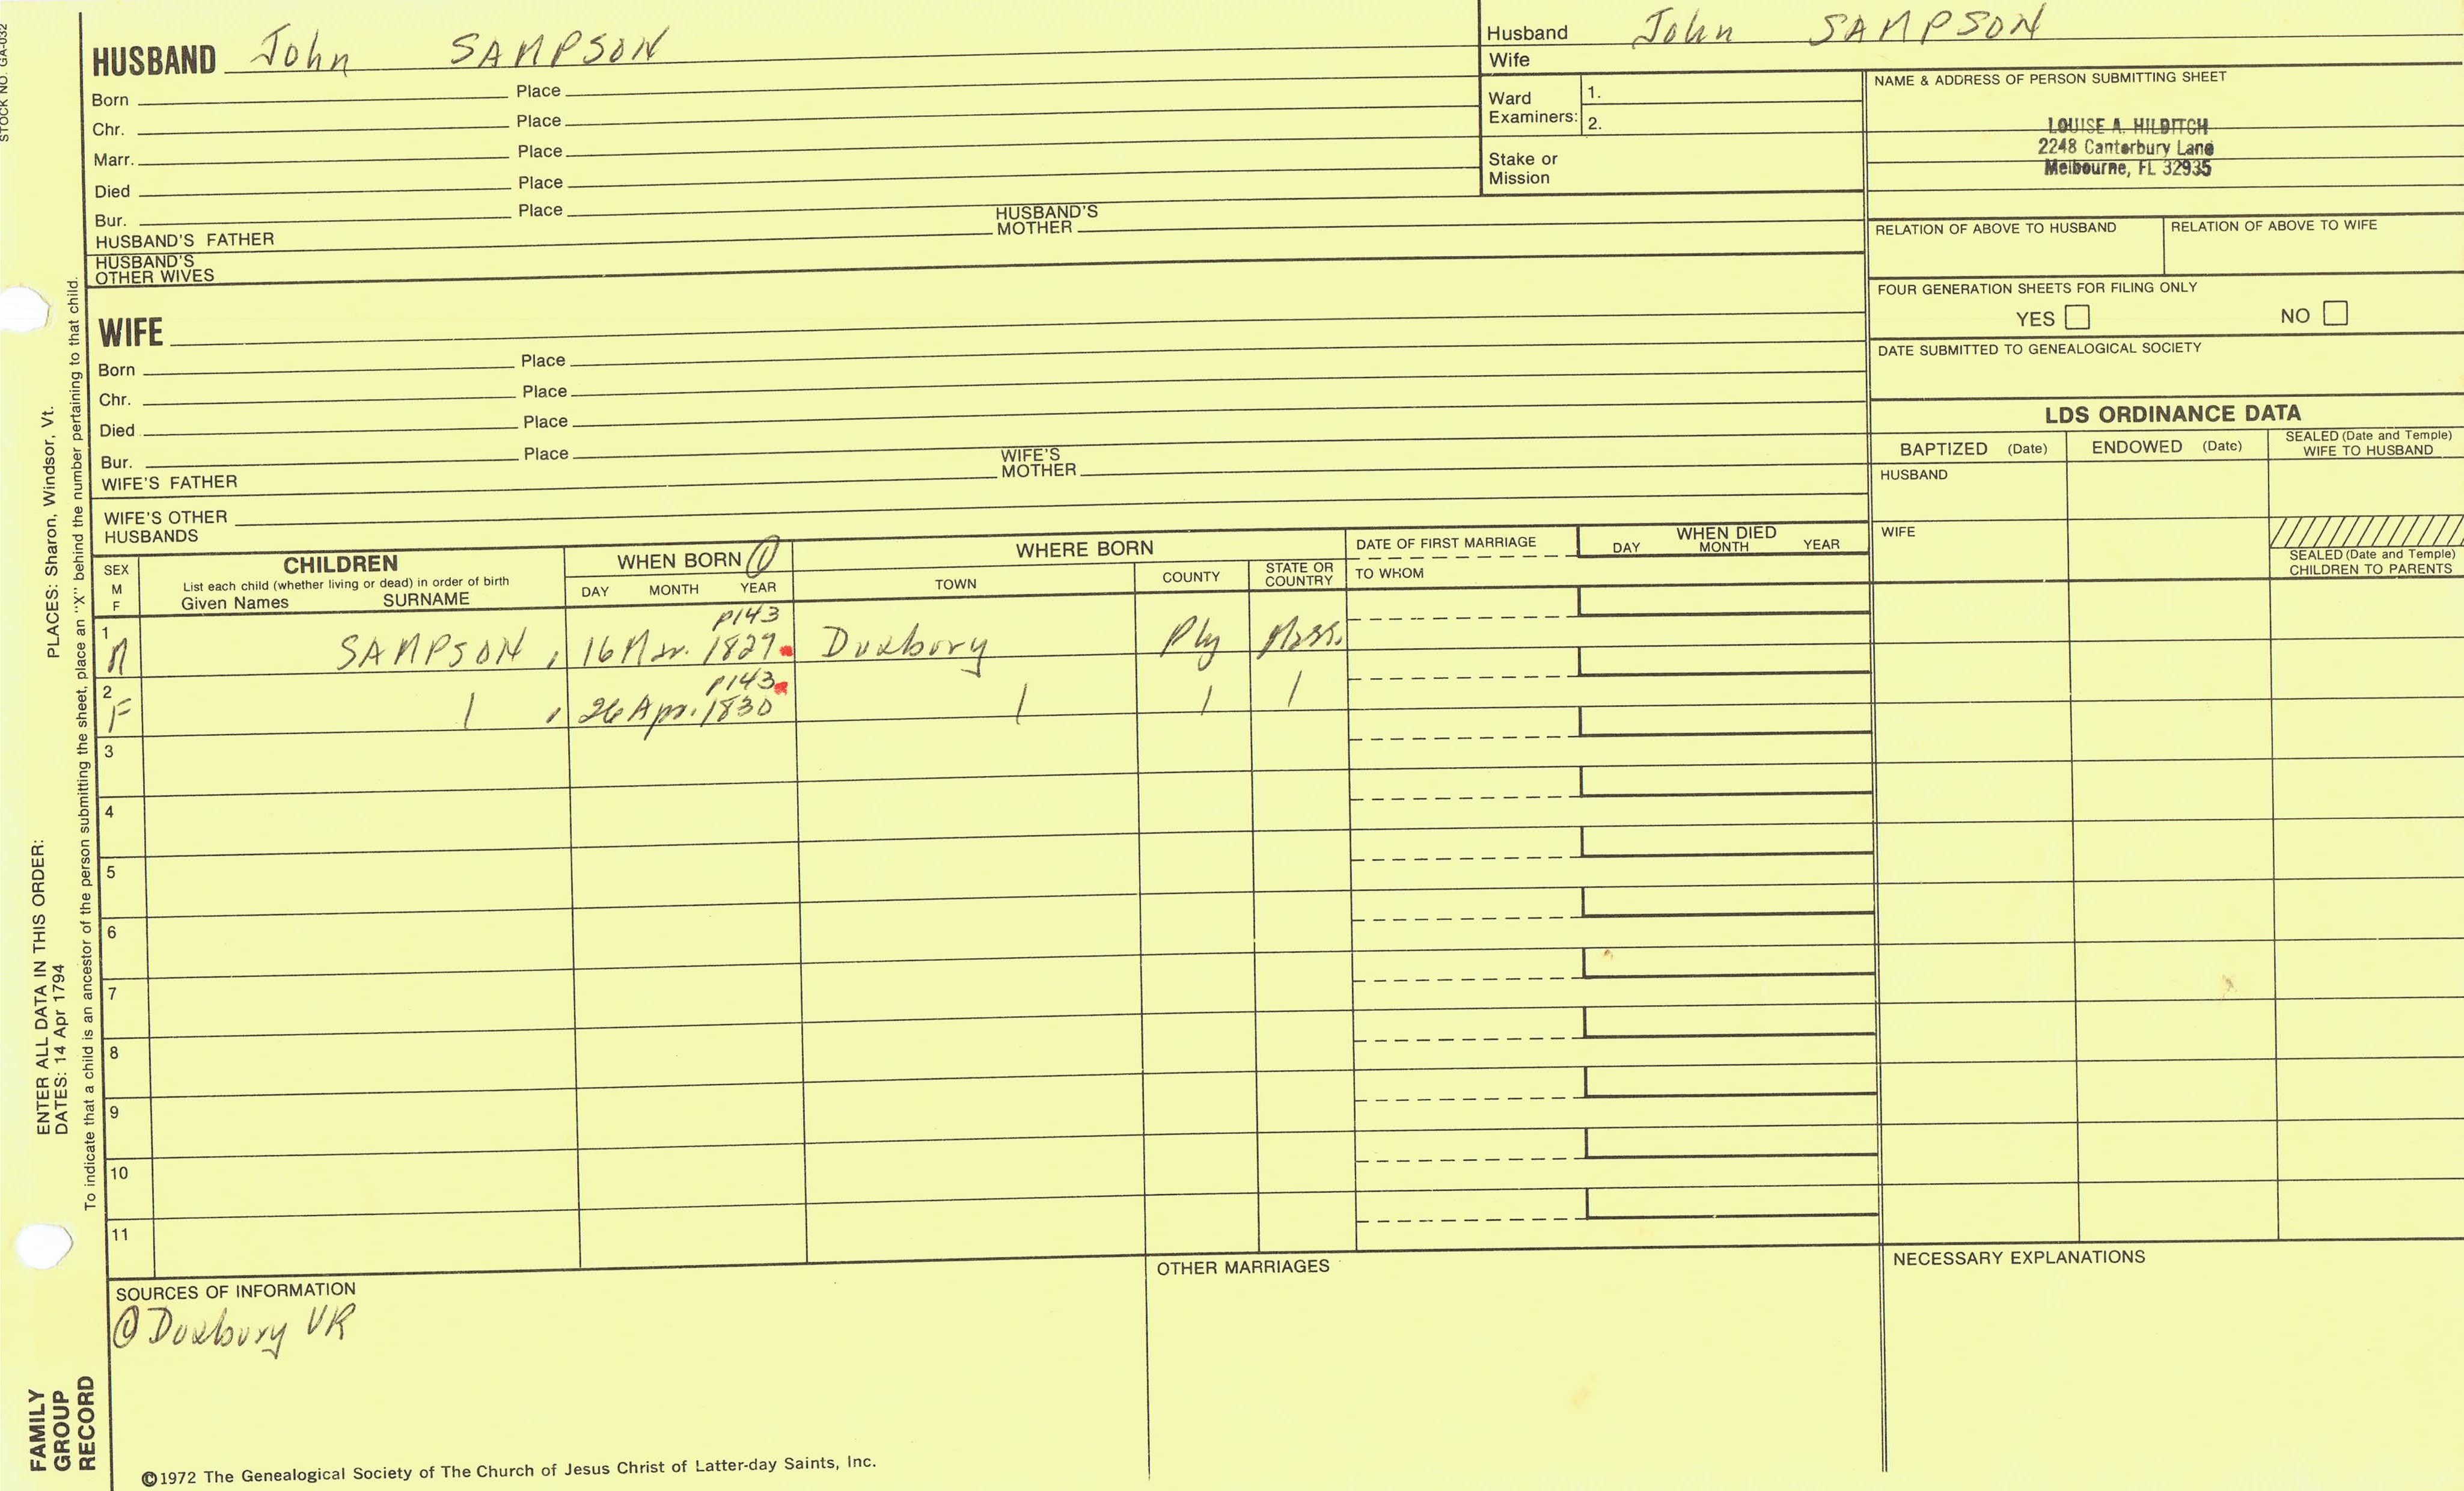 STOCK NO. GA-032
HUSBAND John SAMPSON
Born Place
Chr. Place
Marr. Place
Died Place
Bur. Place
HUSBAND'S FATHER HUSBAND'S MOTHER
HUSBAND'S OTHER WIVES
WIFE
Born Place
Chr. Place
Died Place
Bur. Place
WIFE'S FATHER WIFE'S MOTHER
WIFE'S OTHER HUSBANDS
Husband John SAMPSON
Wife
Ward Examiners: 1.
2.
Stake or Mission
NAME & ADDRESS OF PERSON SUBMITTING SHEET
LOUISE A. HILDITCH
2248 Canterbury Lane
Melbourne, FL 32935
RELATION OF ABOVE TO HUSBAND RELATION OF ABOVE TO WIFE
FOUR GENERATION SHEETS FOR FILING ONLY
YES NO
DATE SUBMITTED TO GENEALOGICAL SOCIETY
LDS ORDINANCE DATA
BAPTIZED (Date) ENDOWED (Date) SEALED (Date and Temple) WIFE TO HUSBAND
HUSBAND
WIFE
SEALED (Date and Temple) CHILDREN TO PARENTS
SEX M F
CHILDREN
List each child (whether living or dead) in order of birth
Given Names SURNAME
WHEN BORN ①
DAY MONTH YEAR
WHERE BORN
TOWN COUNTY STATE OR COUNTRY
DATE OF FIRST MARRIAGE
TO WHOM
WHEN DIED
DAY MONTH YEAR
p143
1 M SAMPSON, 16 Mar. 1827 Duxbury Ply Mass.
p143
2 F | , 26 Apr. 1830 | | |
3
4
5
6
7
8
9
10
11
SOURCES OF INFORMATION
① Duxbury VR
OTHER MARRIAGES
NECESSARY EXPLANATIONS
©1972 The Genealogical Society of The Church of Jesus Christ of Latter-day Saints, Inc.
FAMILY GROUP RECORD
ENTER ALL DATA IN THIS ORDER:
DATES: 14 Apr 1794
PLACES: Sharon, Windsor, Vt.
To indicate that a child is an ancestor of the person submitting the sheet, place an "X" behind the number pertaining to that child.